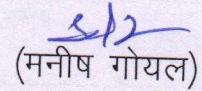 (मनीष गोयल)